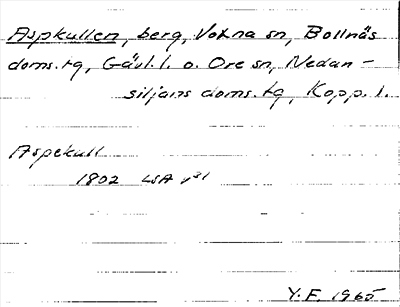 Aspkullen, berg, Voxna sn, Bollnäs
doms.tg, Gävl.l. o. Ore sn, Nedan-
siljans doms.tg, Kopp.l.
Aspekull
1802 LSA
Y.F. 1965